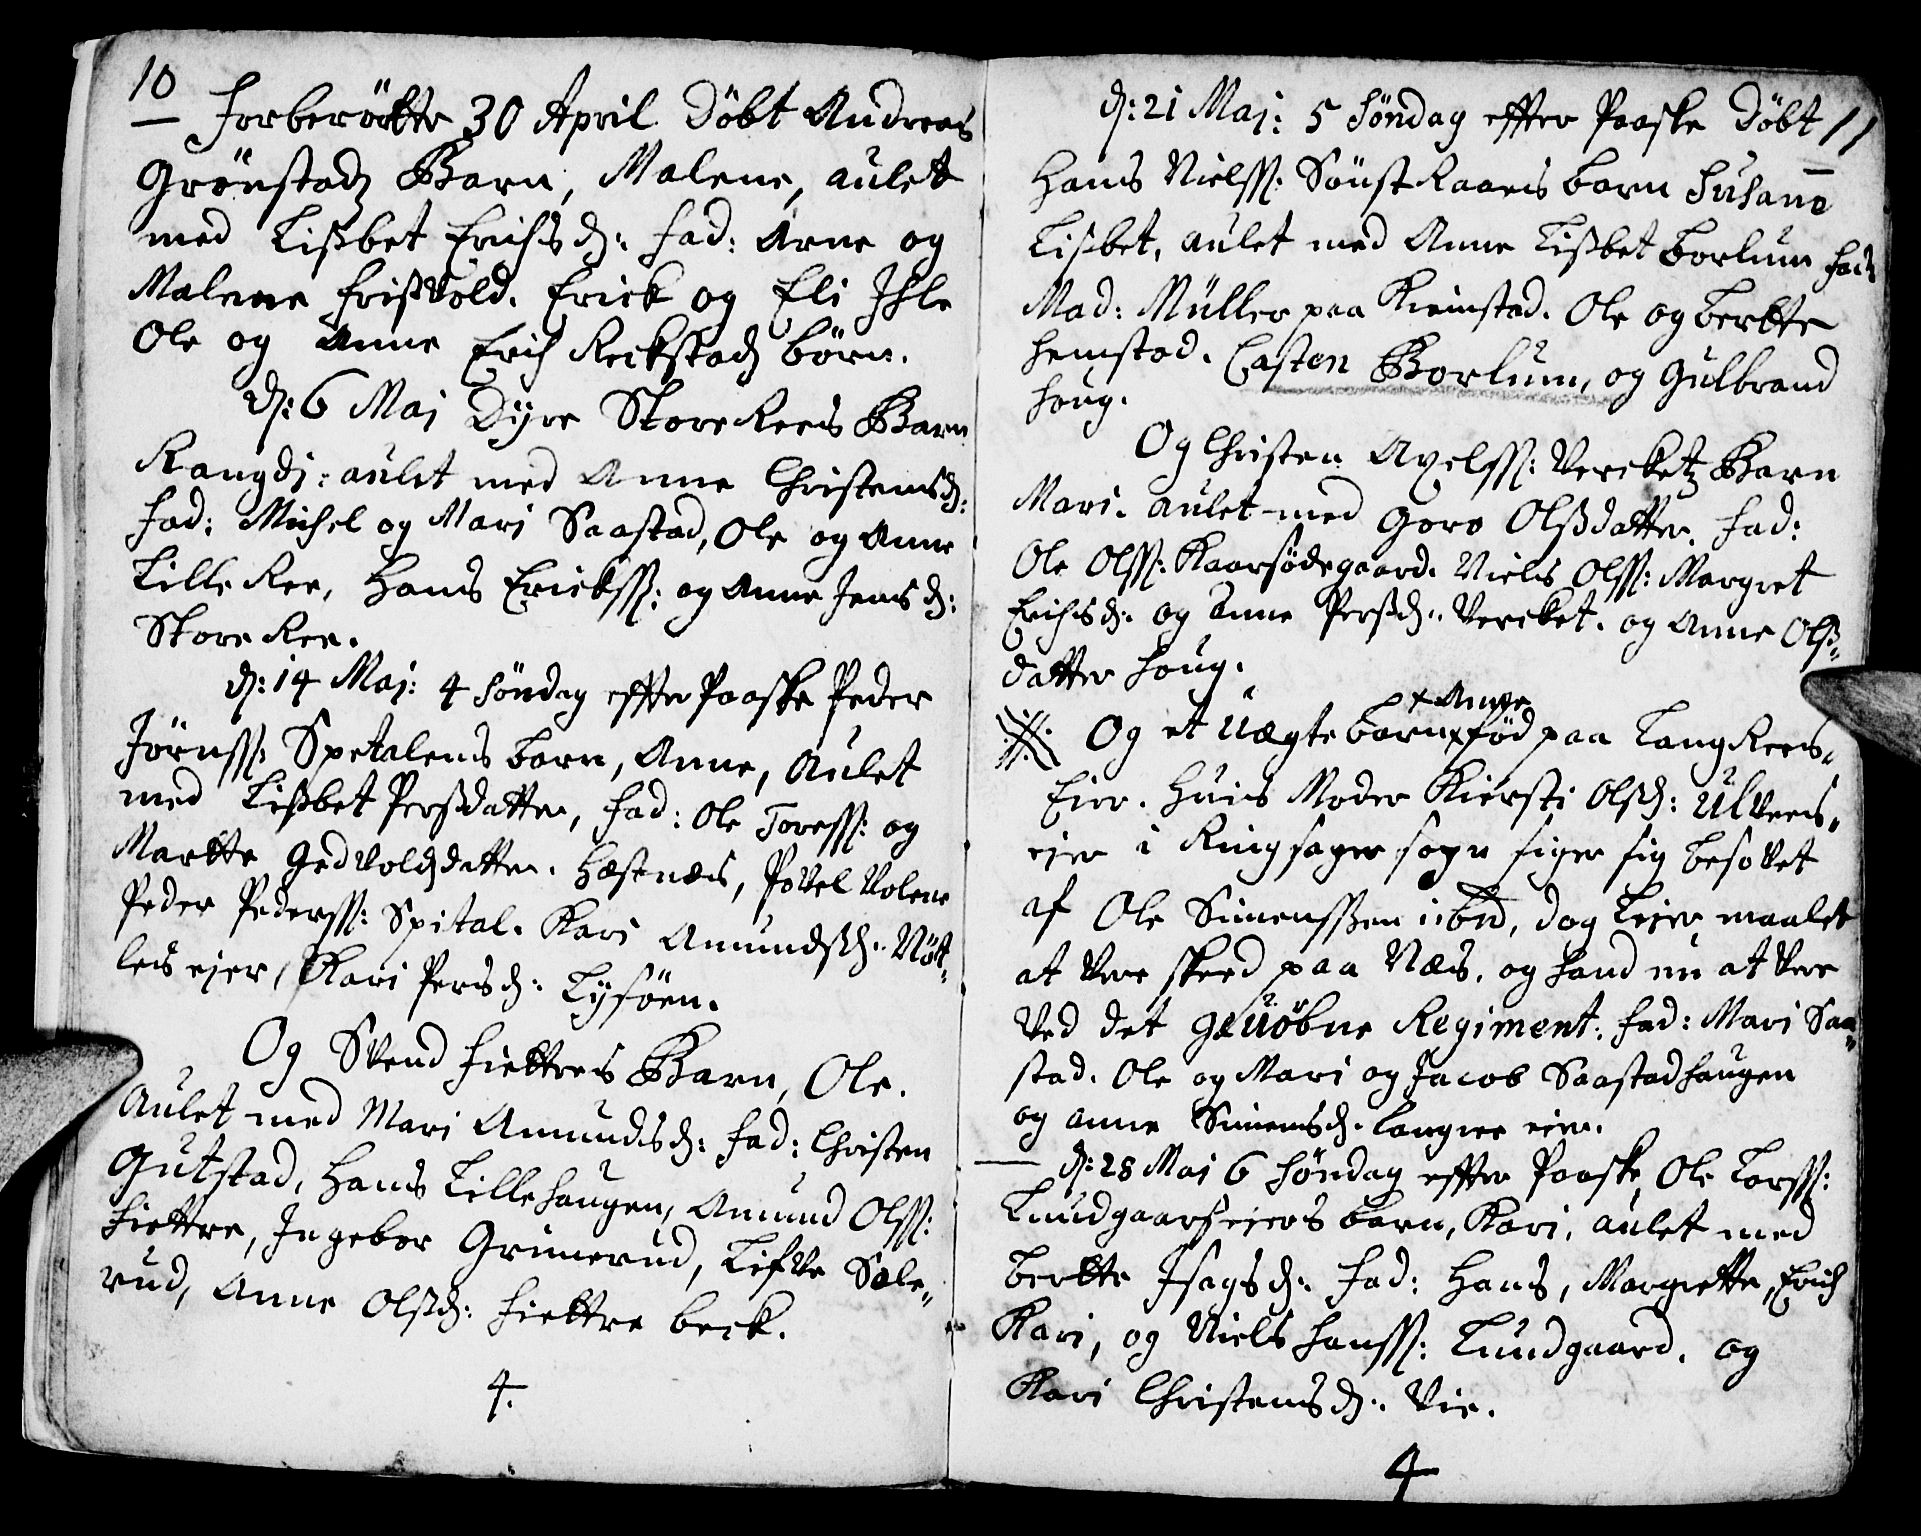 10
Forberörtte 30 April Döbt Andreas
Grönstadz Barn, Malene, aulet
med Lisbet Erichsd: fad: Arne og
Malene Frisvold. Erick og Eli Ihle
Ole og Anne Erich Reckstadz börn.
d: 6 Maj Dyre Store Rees Barn
Rangdi: aulet med Anne Christensd:
fad: Michel og Mari Saastad, Ole og Anne
Lille Ree, Hans Ericksß: og Anne Jensd:
Store Ree.
d: 14 Maj: 4 Söndag effter Paaske Peder
Jörnsß: Spetalens barn, Anne, Aulet
med Lisbet Persdatter, fad: Ole Toresß: og
Martte Gedvoldsdatter. Hæstnæs, Povel Volene
Peder Pedersß: Spital. Kari Amundsd: Nöt-
leseier, Kari Persd: Lysöen.
Og Svend Fiettres Barn, Ole.
Aulet med Mari Amundsd: fad: Christen
Gutstad, Hans Lillehaugen, Amund Olsß:
Fiettre, Ingebor Grimerud, Lisve Sæle-
rud, Anne Olsd: Fiettre beck.
4.
11
d: 21 Maj: 5 Söndag effter Paaske Döbt
Hans Nielsß: Sönst Raaens barn Susane
Lisbet, aulet med Anne Lisbet Borlum fad:
Mad: Müller paa Kiemstad. Ole og Bertte
Hemstad. Casten Borlum, og Gulbrand
Houg.
Og Christen Axelsß: Vercketz Barn
Mari. aulet med Goro Olsdatter. fad:
Ole Olsß: Kaarsödegaard. Niels Olsß: Margret
Erichsd: og Anne Persd: Vercket. og Anne Ols-
datter Houg.
+ Anne
Og et Uægte barn + föd paa Lang Rees-
Eier. Huis Moder Kiersti Olsd: Ulvens-
eier i Ringsager sogn siger sig besovet
af Ole Simensßen ibd, dog Leiermaalet
at vere skeed paa Næs, og hand nu at vere
ved det gevöbne Regiment. fad: Mari Saa-
stad. Ole og Mari og Jacob Saastadhaugen
og Anne Simensd: Langree eier.
d: 28 Maj 6 Söndag effter Paaske, Ole Larsß:
Lundgaardseiers barn, Kari, aulet med
Bertte Isagsd: fad: Hans, Margrette, Erich
Kari, og Niels Hansß: Lundgaard. og
Kari Christensd: Vie.
4